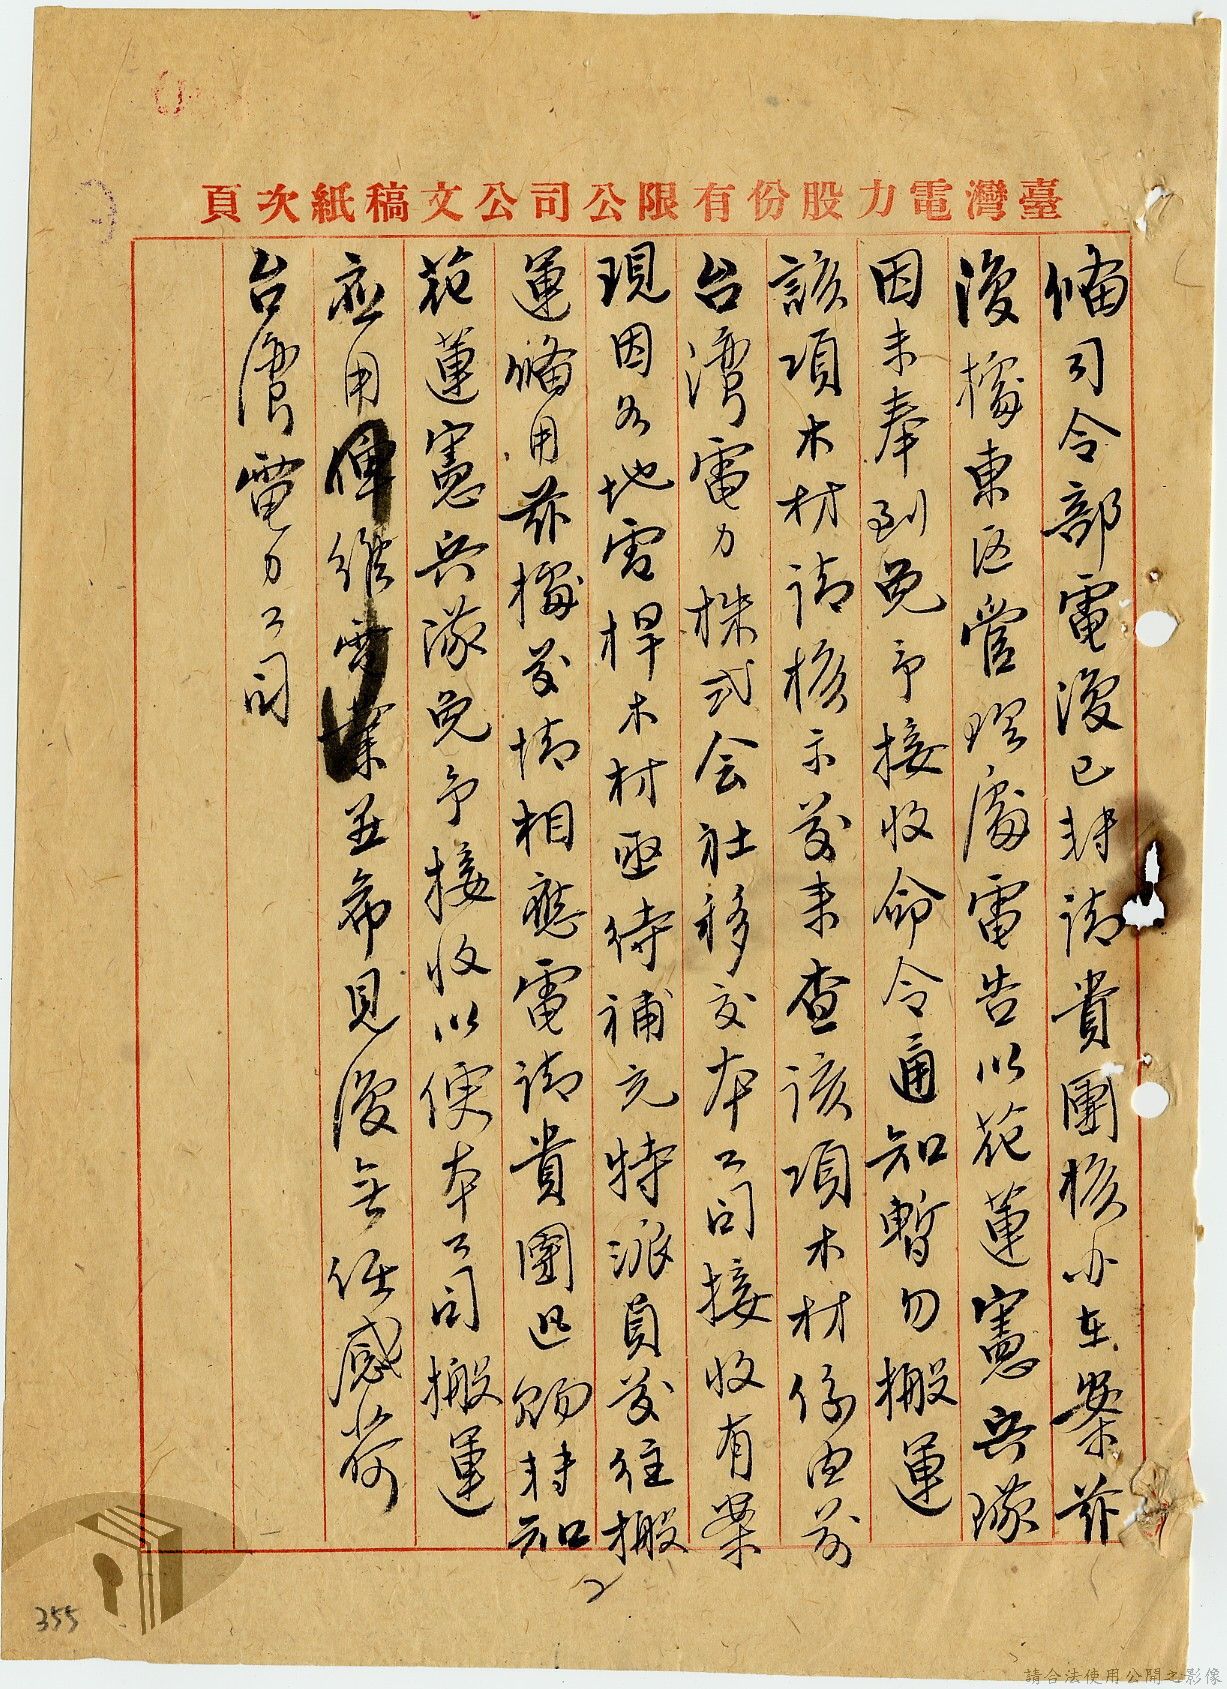 臺灣電力股份有限公司公文稿紙次頁
備司令部電復已轉請貴團核办在案茲
復據東区管理處電告以花蓮憲兵隊
因未奉到免予接收命令通知暫勿搬運
該項木材請核示等來查該項木材係由前
台湾電力株式会社移交本公司接收有案
現因各地電桿木材亟待補充特派員前往搬
運備用茲據前情相應電請貴團迅賜轉知
花蓮憲兵隊免予接收以便本公司搬運
應用俾維電業並希見復無任感荷
台湾電力公司
355
請合法使用公開之影像